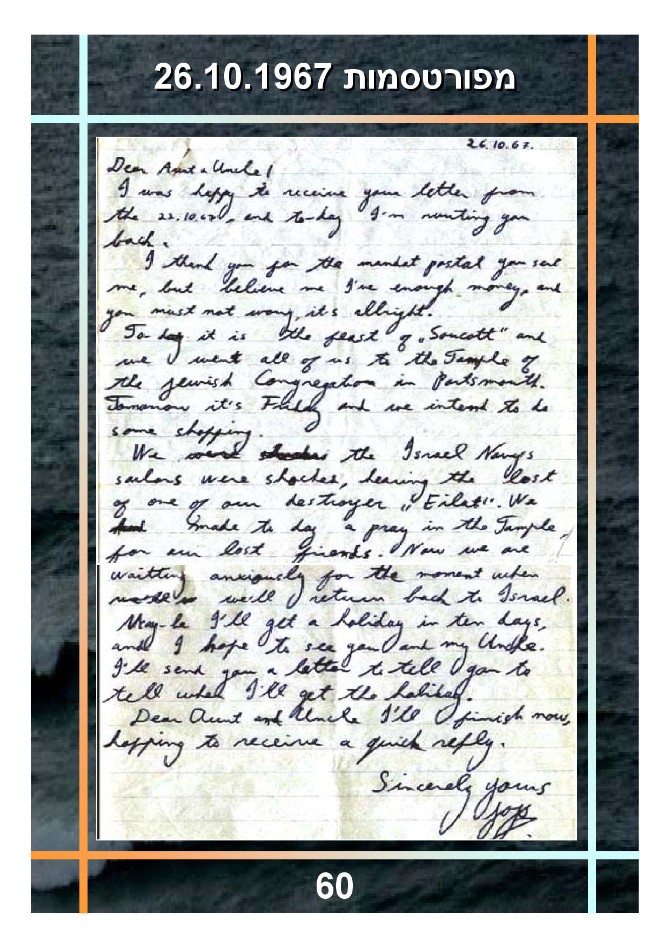 מפורטסמות 26.10.1967
26.10.67.
Dear Aunt & Uncle!
I was heppy to receive your letter from
the 22.10.67, and to-day I'm writing you
back.
I thend you for the mandat postal you sent
me, but believe me I've enough money, and
you must not worry, it's allright.
To day it is the feast of „Soucott" and
we went all of us to the Tample of
the jewish Congregation in Portsmouth.
Tomorrow it's Friday and we intend to do
some shopping.
We were the Israel Navys
sailors were shocked, hearing the lost
of one of our destroyer „Eilat". We
made to day a pray in the Tample,
for our lost friends. Now we are
waitting anxiously for the moment when
we'll return back to Israel.
May-be I'll get a holiday in ten days,
and I hope to see you and my Uncle.
I'll send you a letter to tell you to
tell when I'll get the holiday.
Dear Aunt and Uncle I'll finish now,
hopping to receive a quick reply.
Sincerely yours
60